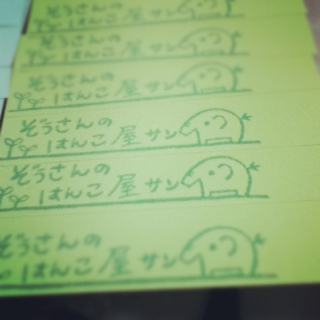 ぞうさんの
はんこ屋サン
ぞうさんの
はんこ屋サン
ぞうさんの
はんこ屋サン
ぞうさんの
はんこ屋サン
ぞうさんの
はんこ屋サン
ぞうさんの
はんこ屋サン